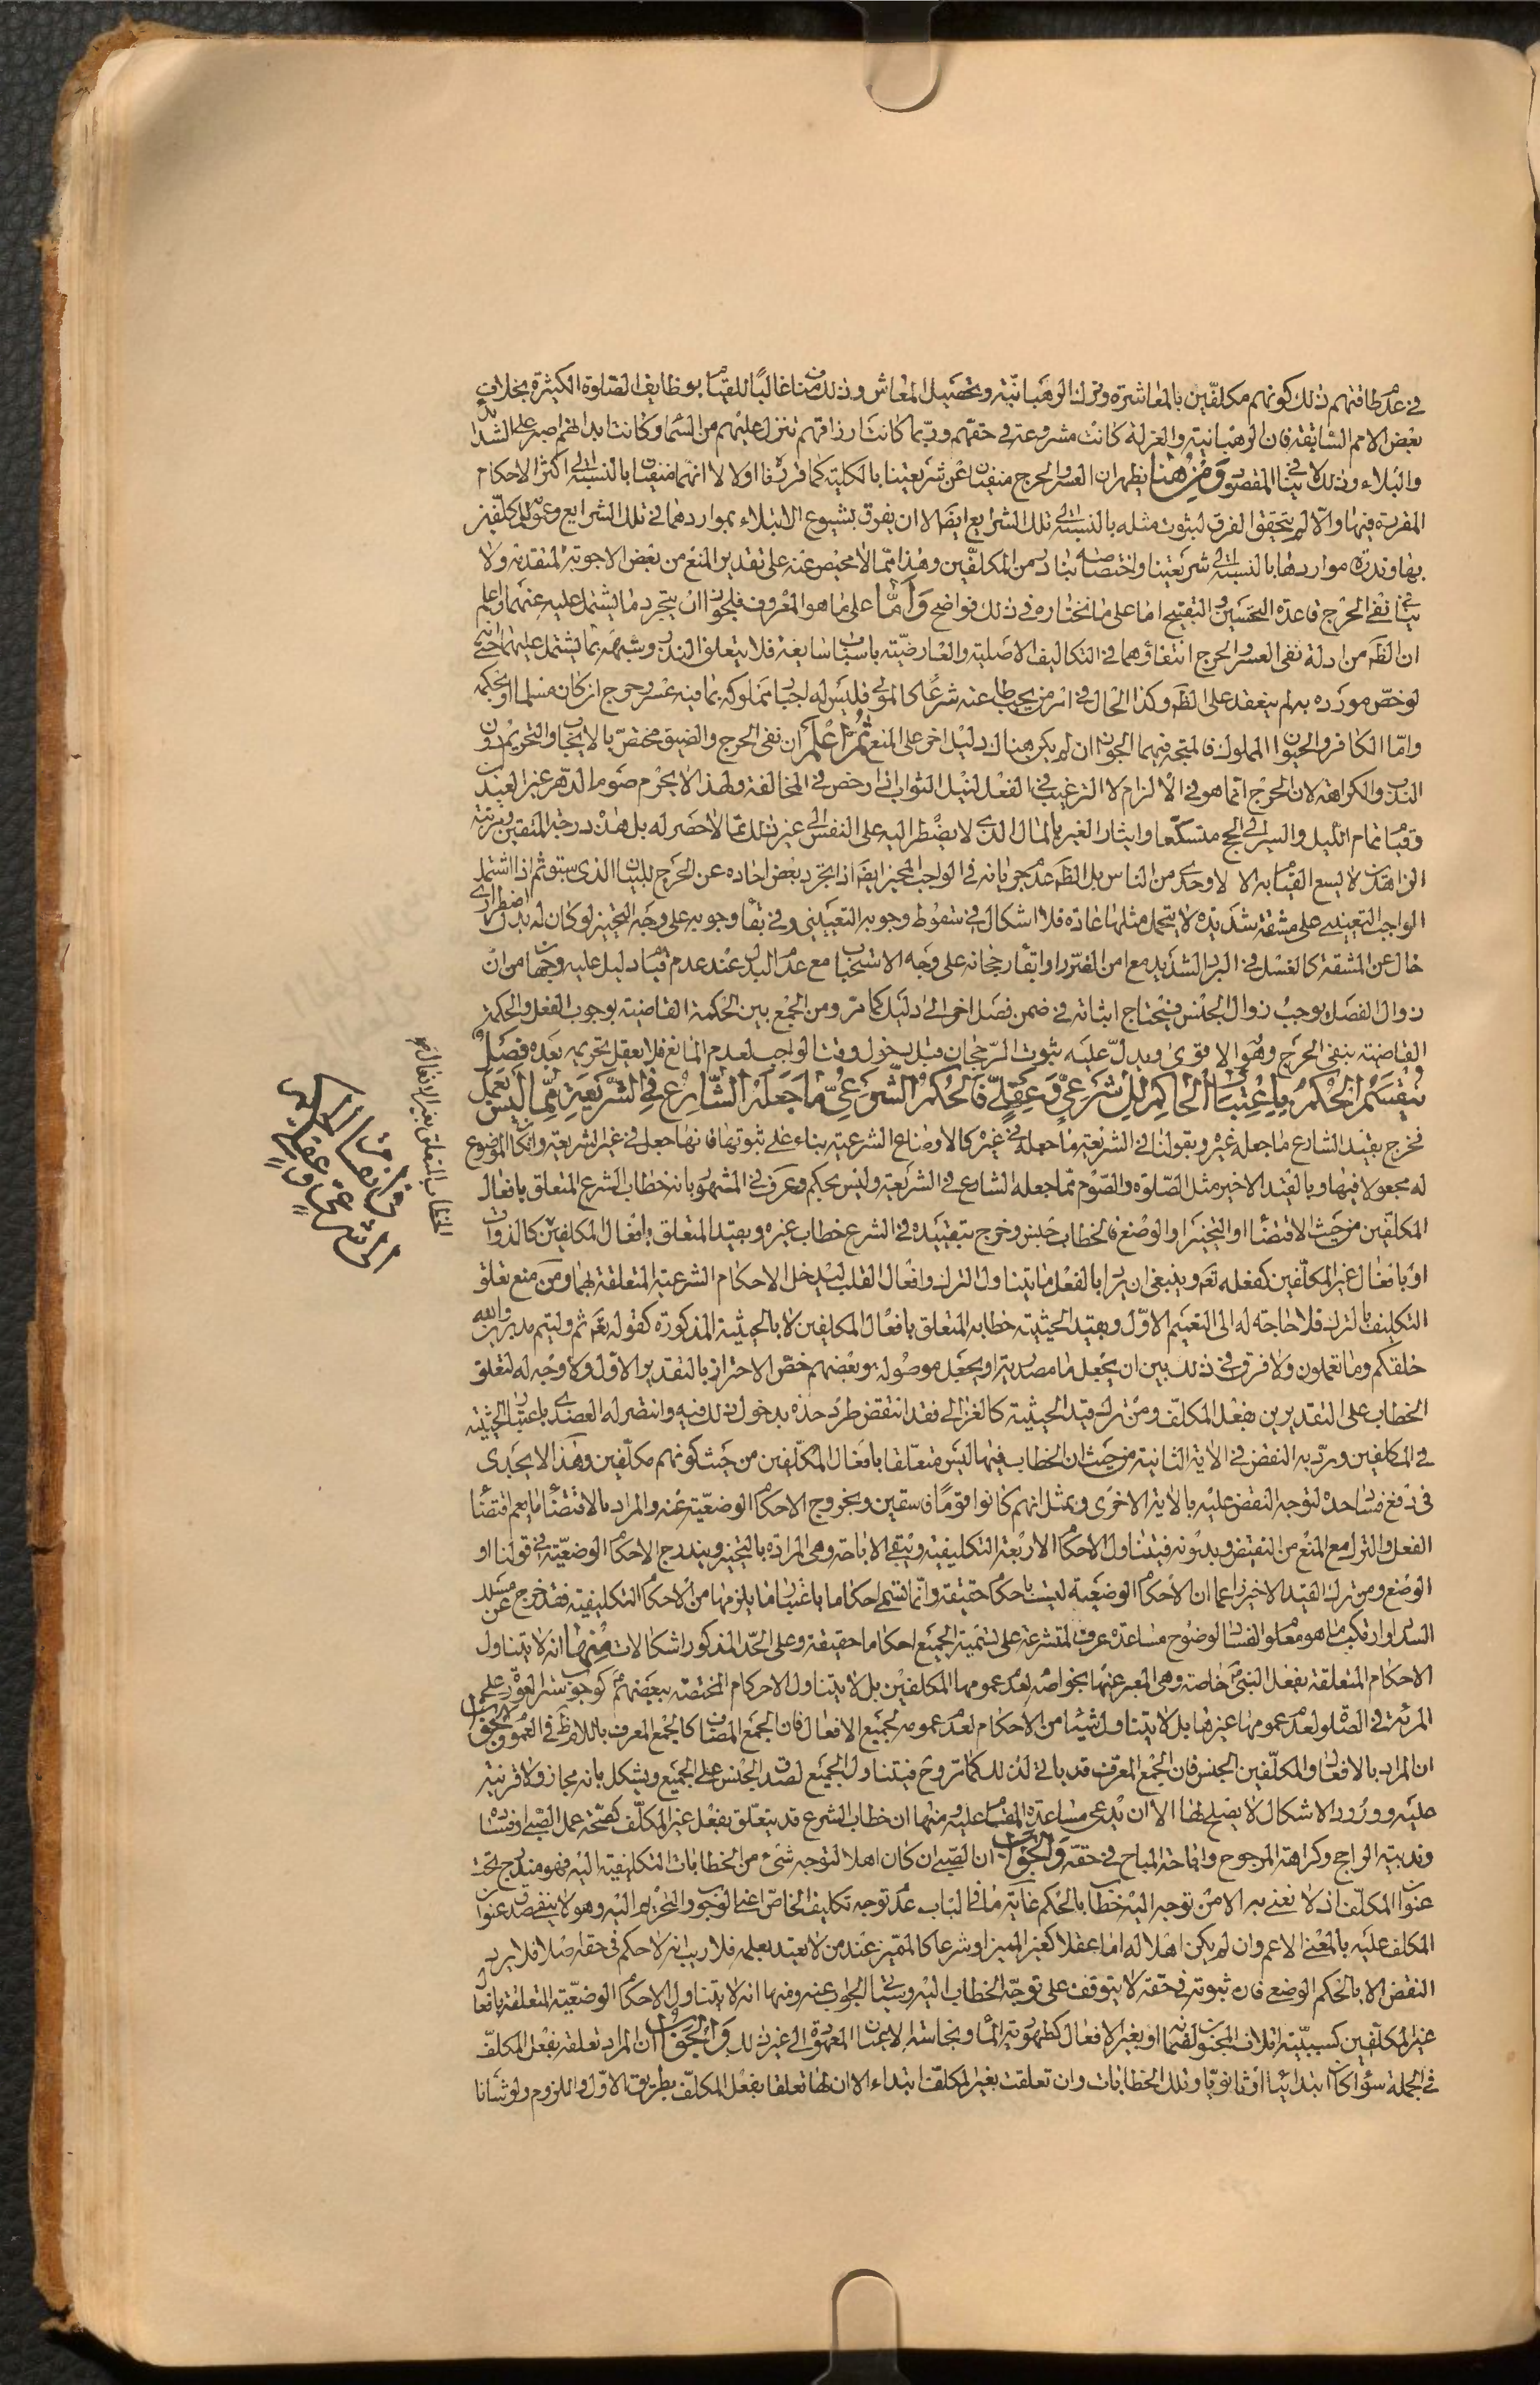 في عدم طاقتهم ذلك كونهم مكلفين بالمعاشرة وترك الرهبانية وتحصيل المعاش وذلك مناف غالبا للقيام بوظايف الصلوة الكثيرة بخلاف
بعض الامم السابقة فان الرهبانية والعزلة كانت مشروعة في حقهم وربما كانت ارزاقهم تنزل عليهم من السماء وكانت ابدانهم اصبر على الشدائد
والبلاء وذلك لا ينافي المقصود ومن هنا يظهر ان العسر والحرج منفيان عن شريعتنا بالكلية كما قررنا اولا لا انهما منفيان بالنسبة الى اكثر الاحكام
المقررة فيها والا لم يتحقق الفرق لثبوت مثله بالنسبة الى تلك الشرايع ايضا الا ان يفرق بشيوع الابتلاء بمواردهما في تلك الشرايع وعمومه للمكلفين
بها وندرة مواردها بالنسبة الى شريعتنا واختصاصه بنادر من المكلفين وهذا مما لا محيص عنه على تقدير المنع من بعض الاجوبة المتقدمة ولا
ينافي نفي الحرج قاعدة التحسين والتقبيح اما على ما نختاره في ذلك فواضح واما على ما هو المعروف فلجواز ان يتجرد ما يشتمل عليه عنهما واعلم
ان الظ من ادلة نفي العسر والحرج انتفاؤهما في التكاليف الاصلية والعارضية باسباب سايغة فلا يتعلق النذر وشبهه بما يشتمل عليهما حتى انه
لو خص مورده به لم ينعقد على الظ وكذا الحال في امر من يجب اطاعته شرعا كالمولى فليس له اجبار مملوكه بما فيه عسر وحرج ان كان مسلما او بحكمه
واما الكافر والحيوان المملوك فالمتجه فيهما الجواز ان لم يكن هناك دليل اخر على المنع ثم اعلم ان نفي الحرج والضيق مختص بالايجاب والتحريم دون
الندب والكراهة لان الحرج انما هو في الالزام لا الترغيب في الفعل لنيل الثواب اذا رخص في المخالفة ولهذا لا يحرم صوم الدهر غير العيدين
وقيام تمام الليل والسير الى الحج متسكعا وايثار الغير بالمال الذي لا يضطر اليه على النفس الى غير ذلك مما لا حصر له بل هذه درجة المتقين ومرتبة
الزاهدين لا يسع القيام به الا لاوحدي من الناس بل الظ عدم جريانه في الواجب المخير ايضا اذا تجرد بعض احاده عن الحرج للبيان الذي سبق ثم اذا اشتمل
الواجب التعييني على مشقة شديدة لا يتحمل مثلها عادة فلا اشكال في سقوط وجوبه التعييني وفي بقاء وجوبه على وجه التخيير لو كان له بدل اضطراري
خال عن المشقة كالغسل في البرد الشديد مع امن الضرر او ابقاء رجحانه على وجه الاستحباب مع عدم البدل عند عدم قيام دليل عليه وجهان من ان
زوال الفصل يوجب زوال الجنس فيحتاج اثباته في ضمن فصل اخر الى دليل كما مر ومن الجمع بين الحكمة القاضية بوجوب الفعل والحكمة
القاضية بنفي الحرج وهو الاقوى ويدل عليه ثبوت الرجحان قبل دخول وقت الواجب لعدم المانع فلا يعقل تحريمه بعده فصل
ينقسم الحكم باعتبار الحاكم الى شرعي وعقلي فالحكم الشرعي ما جعله الشارع في الشريعة مما ليس بعمل
فخرج بقيد الشارع ما جعله غيره وبقولنا في الشريعة ما جعله في غيره كالاوضاع الشرعية بناء على ثبوتها فانها جعل في غير الشريعة وان كان الموضوع
له مجعولا فيها وبالقيد الاخير مثل الصلوة والصوم مما جعله الشارع في الشريعة وليس بحكم وعرف في المشهور بانه خطاب الشرع المتعلق بافعال
المكلفين من حيث الاقتضاء او التخيير او الوضع فالخطاب جنس وخرج بتقييده في الشرع خطاب غيره وبقيد المتعلق بافعال المكلفين كالذوات
او بافعال غير المكلفين كفعله تع وينبغي ان يراد بالفعل ما يتناول الترك وافعال القلب ليدخل الاحكام الشرعية المتعلقة بهما ومن منع تعلق
التكليف بالترك فلا حاجة له الى التعميم الاول وبقيد الحيثية خطابه المتعلق بافعال المكلفين لا بالحيثية المذكورة كقوله تع ثم وليتم مدبرين والله
خلقكم وما تعملون ولا فرق في ذلك بين ان يجعل ما مصدرية او يجعل موصولة وبعضهم خص الاحتراز بالتقدير الاول ولا وجه له لتعلق
الخطاب على التقديرين بفعل المكلف ومن ترك قيد الحيثية كالغزالي فقد انتقض طرد حده بدخول ذلك فيه وانتصر له العضدي باعتبار الحيثية
في المكلفين ورد به النقض في الاية الثانية من حيث ان الخطاب فيها ليس متعلقا بافعال المكلفين من حيث كونهم مكلفين وهذا لا يجدي
في دفع فساد حده لتوجه النقض عليه بالاية الاخرى وبمثل انهم كانوا قوما فاسقين وبخروج الاحكام الوضعية عنه والمراد بالاقتضاء ما يعم اقتضاء
الفعل والترك مع المنع من النقيض وبدونه فيتناول الاحكام الاربعة التكليفية ويبقى الاباحة وهي المرادة بالتخيير ويندرج الاحكام الوضعية في قولنا او
الوضع ومن ترك القيد الاخير زاعما ان الاحكام الوضعية ليست باحكام حقيقة وانما تسمى احكاما باعتبار ما يلزمها من الاحكام التكليفية فقد خرج عن مسلك
السداد وارتكب ما هو معلوم الفساد لوضوح مساعدة عرف المتشرعة على تسمية الجميع احكاما حقيقة وعلى الحد المذكور اشكالات منها انه لا يتناول
الاحكام المتعلقة بفعل النبي خاصة وهي المعبر عنها بخواصه لعدم عمومها المكلفين بل لا يتناول الاحكام المختصة ببعضهم كوجوب ستر العورة على
المرئة في الصلوة لعدم عمومها غيرها بل لا يتناول شيئا من الاحكام لعدم عمومه لجميع الافعال فان الجمع المضاف كالجمع المعرف باللام ظ في العموم والجواب
ان المراد بالافعال والمكلفين الجنس فان الجمع المعرف قد ياتي لذلك كما مر وح فيتناول الجميع لصدق الجنس على الجميع ويشكل بانه مجاز ولا قرينة
عليه وورود الاشكال لا يصلح لها الا ان يدعى مساعدة المقام عليه ومنها ان خطاب الشرع قد يتعلق بفعل غير المكلف كصحة عمل الصبي او فساده
وندبية الراجح وكراهة المرجوح واباحة المباح في حقه والجواب ان الصبي ان كان اهلا لتوجه شيء من الخطابات التكليفية اليه فهو مندرج تحت
عنوان المكلف اذ لا نعني به الا من توجه اليه خطاب بالحكم غاية ما في الباب عدم توجه تكليف الخاص اعني الوجوب والتحريم اليه وهو لا ينفي صدق عنوان
المكلف عليه بالمعنى الاعم وان لم يكن اهلا له اما عقلا كغير المميز او شرعا كالمميز عند من لا يعتد بعلمه فلا ريب انه لا حكم في حقه اصلا فلا يرد
النقض الا بالحكم الوضعي فان ثبوته في حقه لا يتوقف على توجه الخطاب اليه وسياتي الجواب عنه ومنها انه لا يتناول الاحكام الوضعية المتعلقة بافعال
غير المكلفين كسببية اتلاف المجنون لضمانه او بغير الافعال كطهورية الماء ونجاسة الاعيان المعهودة الى غير ذلك والجواب ان المراد تعلقه بفعل المكلف
في الجملة سواء كان ابتدائيا او ثانويا وتلك الخطابات وان تعلقت بغير المكلف ابتداء الا ان لها تعلقا بفعل المكلف بطريق الاول واللزوم ولو شانا